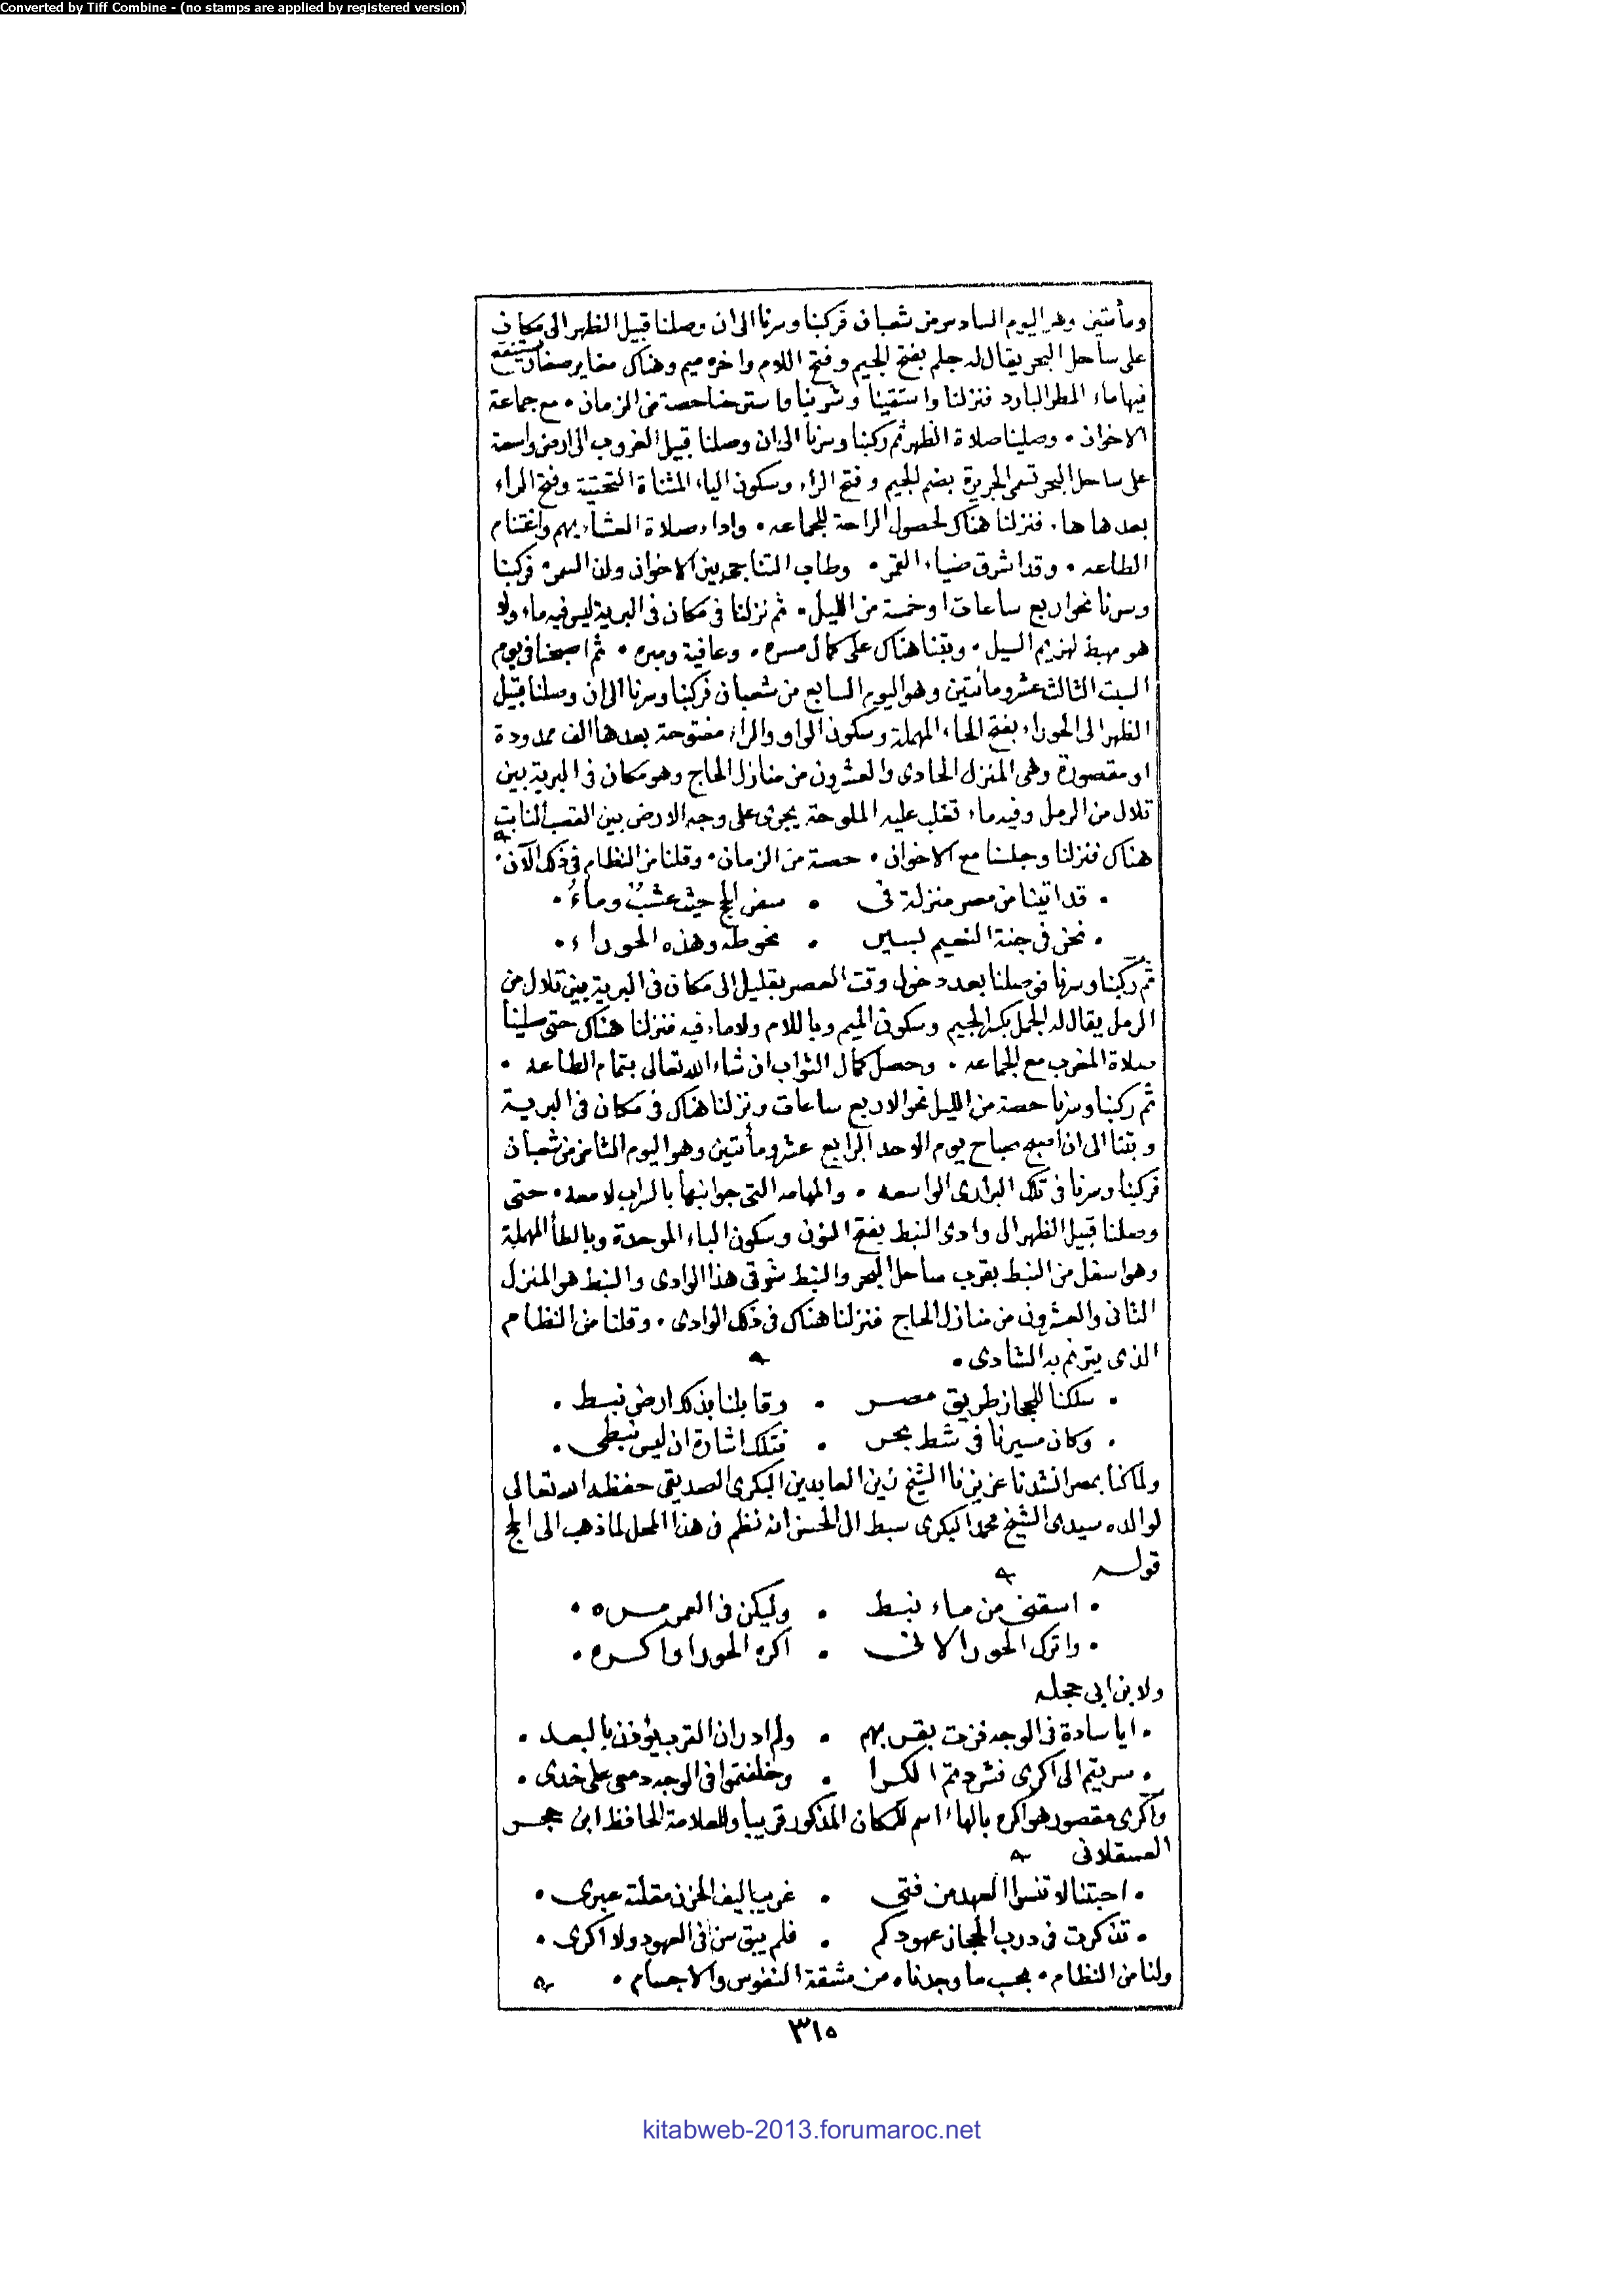 Converted by Tiff Combine - (no stamps are applied by registered version)
ومأتين وهو اليوم السادس من شعبان فركبنا وسرنا الى ان وصلنا قبيل الظهر الى مكان
على ساحل البحر يقال له جلم بفتح الجيم وفتح اللام واخره ميم وهناك مغاير صغار يستنقع
فيها ماء المطر البارد فنزلنا واستقينا وشربنا واسترحنا حصة من الزمان • مع جماعة
الاخوان • وصلينا صلاة الظهر ثم ركبنا وسرنا الى ان وصلنا قبيل الغروب الى ارض واسعة
على ساحل البحر تسمى الجريرة بضم الجيم وفتح الراء وسكون الياء المثناة التحتية وفتح الراء
بعدها هاء فنزلنا هناك لحصول الراحة للجماعه • واداء صلاة العشاء بهم واغتنام
الطاعه • وقد اشرق ضياء القمر • وطاب التناجي بين الاخوان ولذ السمر • فركبنا
وسرنا نحو اربع ساعات او خمسة من الليل • ثم نزلنا في مكان في البرية ليس فيه ماء ولا
هو مهبط لهزيم السيل • وبتنا هناك على كمال مسره • وعافية ومبره • ثم اصبحنا في يوم
السبت الثالث عشر ومأتين وهو اليوم السابع من شعبان فركبنا وسرنا الى ان وصلنا قبيل
الظهر الى الحوراء بفتح الحاء المهملة وسكون الواو والراء مفتوحة بعدها الف ممدودة
او مقصورة وهي المنزل الحادي والعشرون من منازل الحاج وهو مكان في البرية بين
تلال من الرمل وفيه ماء تغلب عليه الملوحة يجري على وجه الارض بين القصب النابت
هناك فنزلنا وجلسنا مع الاخوان • حصة من الزمان • وقلنا من النظام في ذلك الآن •
• قد اتينا من مصر منزلة في • سفر الحج حيث عشبٌ وماءُ •
• نحن في جنة النعيم بسير • نحو طه وهذه الحوراء •
ثم ركبنا وسرنا فوصلنا بعد دخول وقت العصر بقليل الى مكان في البرية بين تلال من
الرمل يقال له الجمل بكسر الجيم وسكون الميم وباللام ولا ماء فيه فنزلنا هناك حتى صلينا
صلاة المغرب مع الجماعه • وحصل كمال الثواب ان شاء الله تعالى بتمام الطاعه •
ثم ركبنا وسرنا حصة من الليل نحو الاربع ساعات ونزلنا هناك في مكان في البرية
وبتنا الى ان اصبح صباح يوم الاحد الرابع عشر ومأتين وهو اليوم الثامن من شعبان
فركبنا وسرنا في تلك البراري الواسعه • والمهامه التي جوانبها بالسراب لامعه • حتى
وصلنا قبيل الظهر الى وادي النبط بفتح النون وسكون الباء الموحدة وبالطاء المهملة
وهو اسفل من النبط بقرب ساحل البحر والنبط شوقي هذا الوادي والنبط هو المنزل
الثاني والعشرون من منازل الحاج فنزلنا هناك في ذلك الوادي • وقلنا من النظام
الذي يترنم به الشادي •
• سلكنا للحجاز طريق مصر • وقابلنا بذلك ارض نبط •
• وكان مسيرنا في شط بحر • فتلك اشارة ان ليس نبطي •
ولما كنا بمصر انشدنا عزيزنا الشيخ زين العابدين البكري الصديقي حفظه الله تعالى
لوالده سيدي الشيخ محمد البكري سبط ال الحسن انه نظم في هذا المحل لما ذهب الى الحج
قوله
• اسقني من ماء نبط • وليكن في العمر مره •
• واترك الحورا لاني • اكره الحورا واكره •
ولابن ابي حجله
• ايا سادة في الوجه فزت بقربهم • ولم ادر ان القرب يؤذن بالبعد •
• سريتم الى اكرى فشردتم الكرا • وخلفتموا في الوجه دمعي على خدي •
واكرى مقصور هو اكره بالهاء اسم للمكان المذكور قريبا وللعلامة الحافظ ابن حجر
العسقلاني
• احبتنا لا تنسوا العهد من فتى • غريب اليف الحزن مقلته عبرى •
• تذكرت في درب الحجاز عهودكم • فلم يبق في العهود ولا اكرى •
ولنا من النظام • بحسب ما وجدناه من مشقة النفوس والاجسام •
٣١٥
kitabweb-2013.forumaroc.net